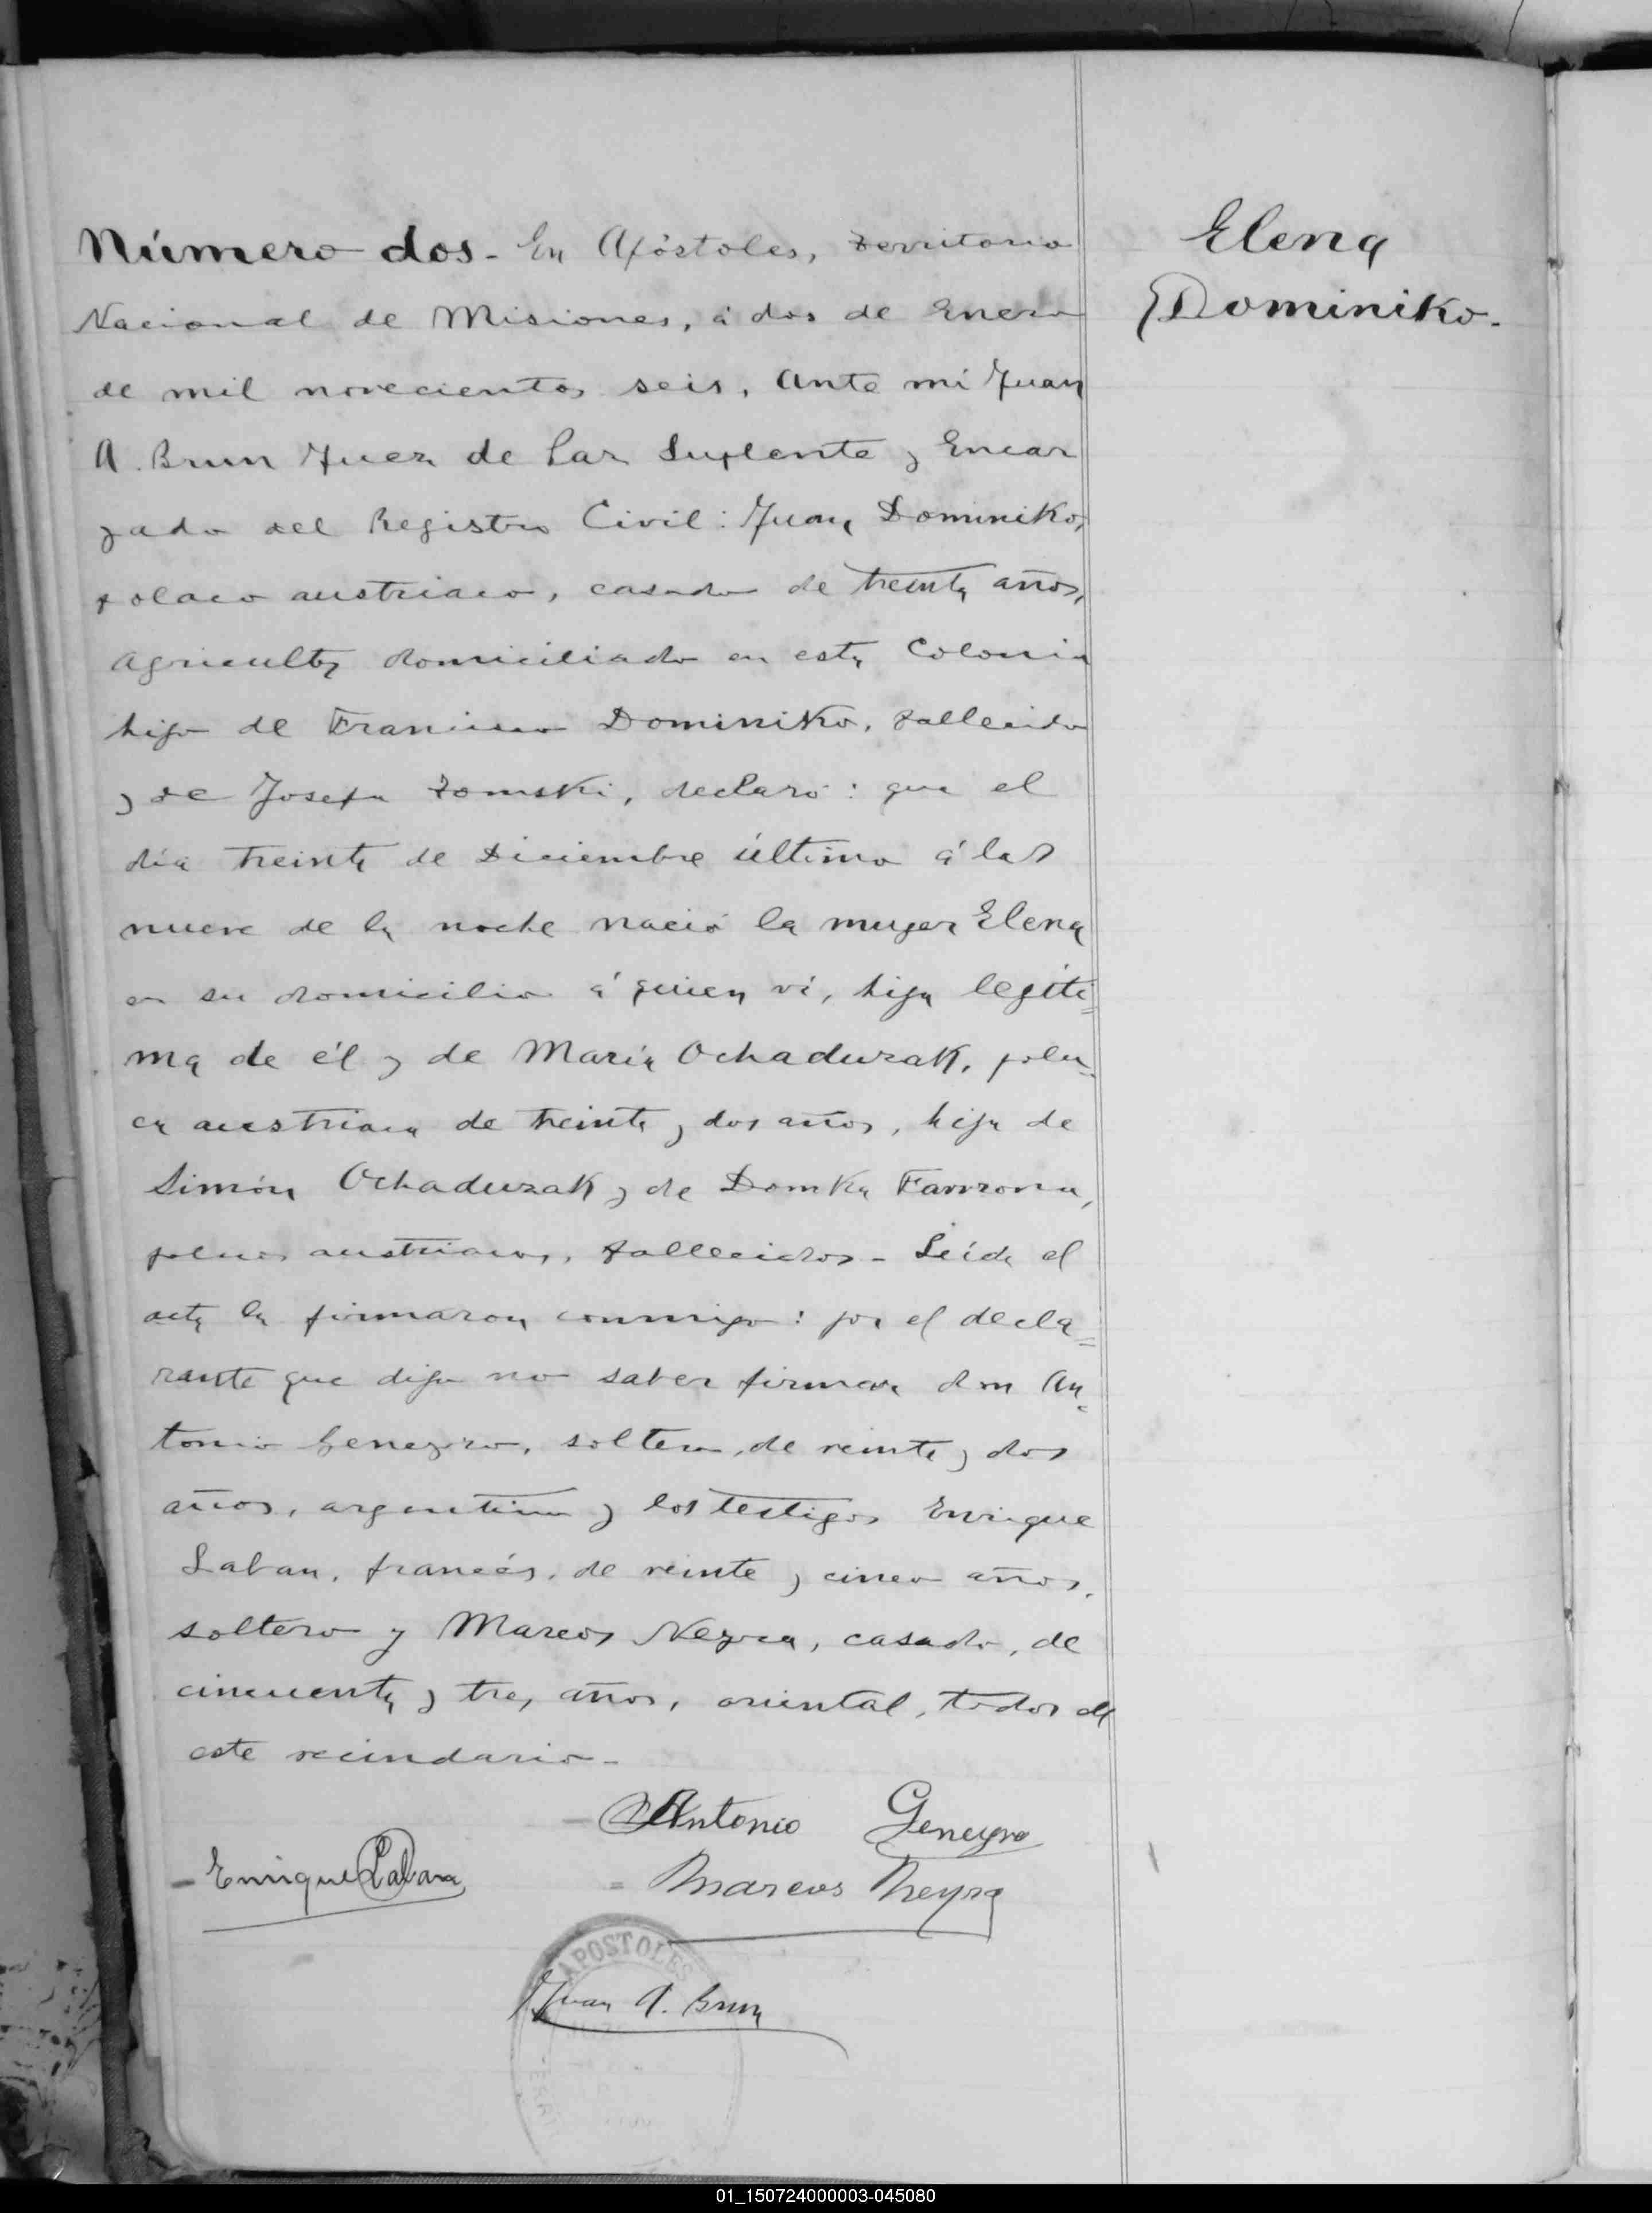 Número dos. En Apóstoles, Territorio
Nacional de Misiones, á dos de Enero
de mil novecientos seis, ante mí Juan
A. Brun Juez de Paz Suplente y Encar
gado del Registro Civil: Juan Dominiko,
polaco austriaco, casado de treinta años,
agricultor domiciliado en esta Colonia
hijo de Francisco Dominiko, fallecido
y de Josefa Zomski, declaró: que el
día treinta de Diciembre último á las
nueve de la noche nació la mujer Elena
en su domicilio á quien ví, hija legíti=
ma de él y de María Ochaduzak, pola-
ca austriaca de treinta y dos años, hija de
Simón Ochaduzak y de Domka
polacos austriacos, fallecidos - Leída el
acta la firmaron conmigo: por el decla=
rante que dijo no saber firmar don An=
tonio Geneyro, soltero, de veinte y dos
años, argentino y los testigos Enrique
Laban, francés, de veinte y cinco años,
soltero y Marcos Neyra, casado, de
cincuenta y tres años, oriental, todos de
este vecindario -
Antonio Geneyro
Enrique Laban
Marcos Neyra
APOSTOLES
Juan A. Brun
Elena
Dominiko.
01_150724000003-045080